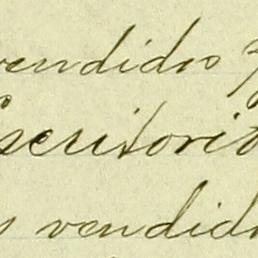 vendidos
Escritorio
vendido